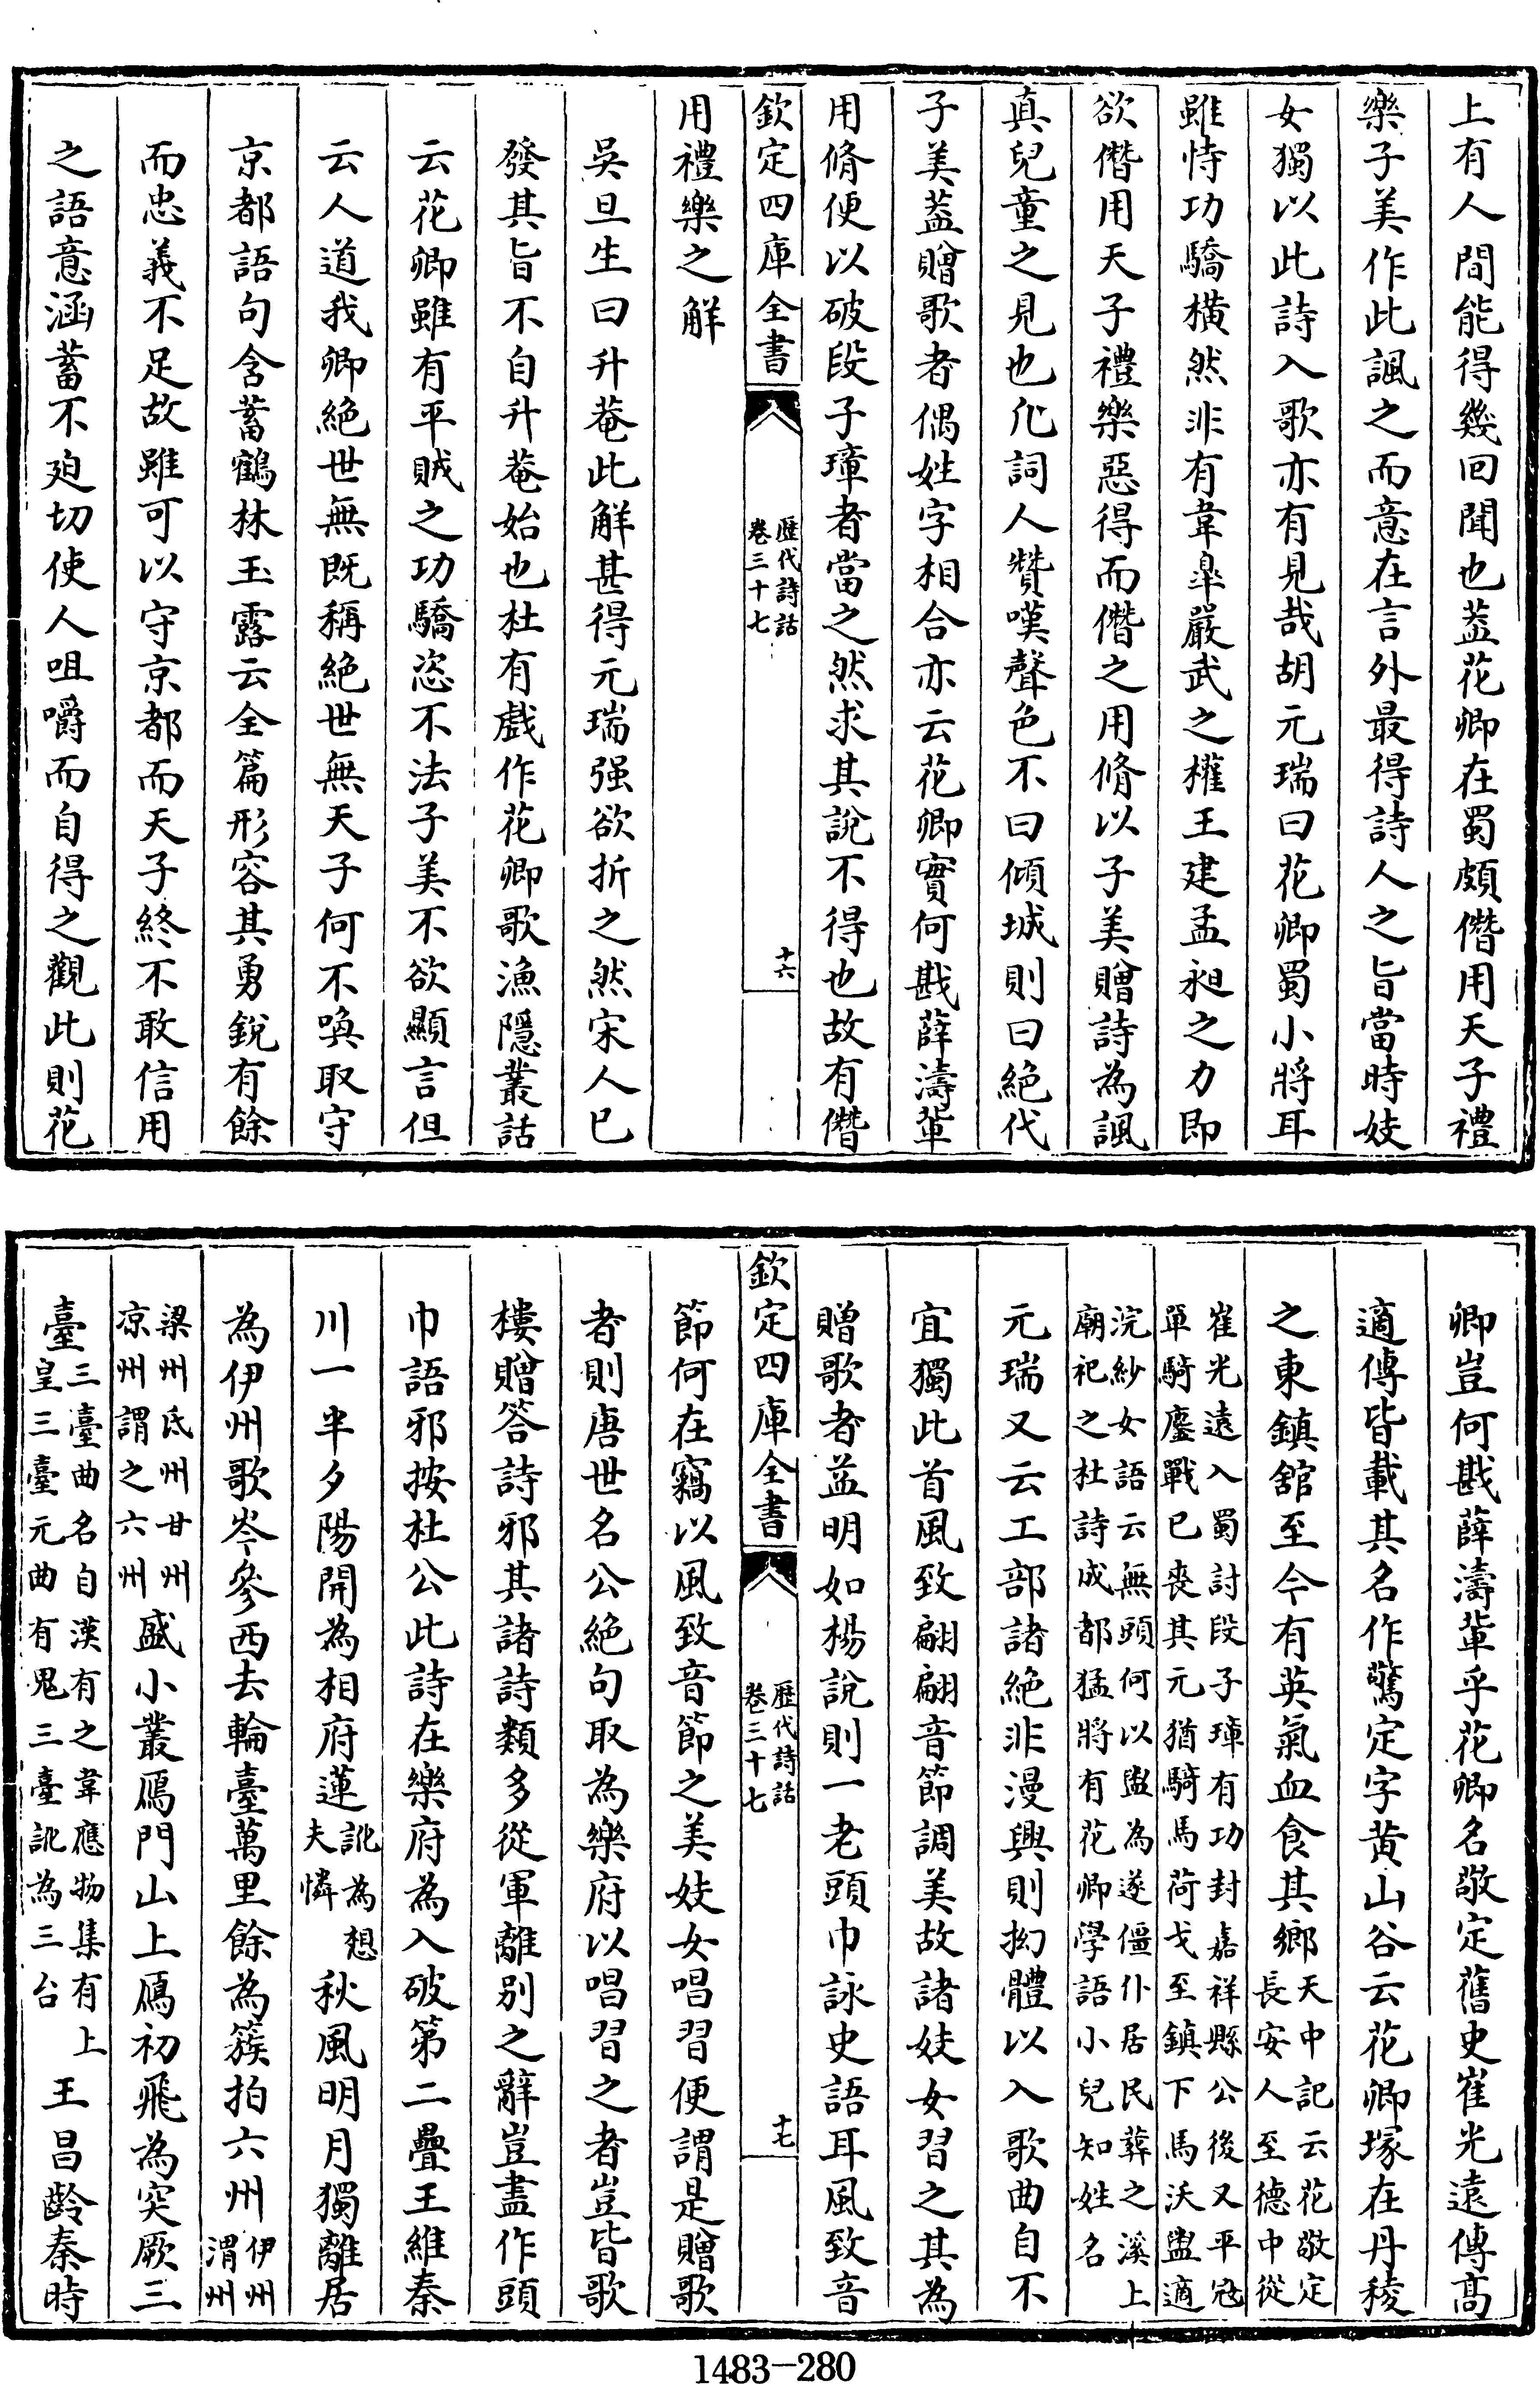 上有人間能得幾回聞也葢花卿在蜀頗僭用天子禮
樂子美作此諷之而意在言外最得詩人之旨當時妓
女獨以此詩入歌亦有見哉胡元瑞曰花卿蜀小將耳
雖恃功驕横然非有韋臯嚴武之權王建孟昶之力即
欲僭用天子禮樂惡得而僭之用脩以子美贈詩為諷
真兒童之見也凡詞人贊嘆聲色不曰傾城則曰絶代
子美葢贈歌者偶姓字相合亦云花卿實何戡薛濤軰
用脩便以破段子璋者當之然求其說不得也故有僭
欽定四庫全書
歴代詩話
卷三十七
十六
用禮樂之解
吳旦生曰升菴此解甚得元瑞强欲折之然宋人已
發其旨不自升菴始也杜有戲作花卿歌漁隱叢話
云花卿雖有平賊之功驕恣不法子美不欲顯言但
云人道我卿絶世無既稱絶世無天子何不喚取守
京都語句含蓄鶴林玉露云全篇形容其勇銳有餘
而忠義不足故雖可以守京都而天子終不敢信用
之語意涵蓄不廹切使人咀嚼而自得之觀此則花
卿豈何戡薛濤軰乎花卿名敬定舊史崔光遠傳高
適傳皆載其名作驚定字黄山谷云花卿塚在丹稜
之東鎮舘至今有英氣血食其鄉天中記云花敬定
長安人至德中從
崔光遠入蜀討段子璋有功封嘉祥縣公後又平冦
單騎鏖戰已喪其元猶騎馬荷戈至鎮下馬沃盥適
浣紗女語云無頭何以盥為遂僵仆居民葬之溪上
廟祀之杜詩成都猛將有花卿學語小兒知姓名
元瑞又云工部諸絶非漫興則拗體以入歌曲自不
宜獨此首風致翩翩音節調美故諸妓女習之其為
贈歌者益明如楊說則一老頭巾詠史語耳風致音
欽定四庫全書
歴代詩話
卷三十七
十七
節何在竊以風致音節之美妓女唱習便謂是贈歌
者則唐世名公絶句取為樂府以唱習之者豈皆歌
樓贈答詩邪其諸詩類多從軍離别之辭豈盡作頭
巾語邪按杜公此詩在樂府為入破第二疊王維秦
川一半夕陽開為相府蓮訛為想
夫憐秋風明月獨離居
為伊州歌岑參西去輪臺萬里餘為簇拍六州伊州
渭州
梁州氐州甘州
凉州謂之六州盛小叢鴈門山上鴈初飛為突厥三
臺三臺曲名自漢有之韋應物集有上
皇三臺元曲有鬼三臺訛為三台王昌齡秦時
1483—280